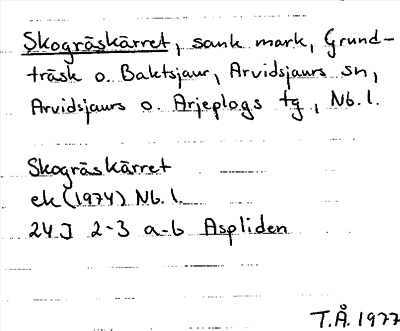 Skogräskärret, sank mark, Grund-
träsk o. Baktsjaur, Arvidsjaurs sn,
Arvidsjaurs o. Arjeplogs tg, Nb. l.
Skogräskärret
ek (1974) Nb. l.
24J 2-3 a-b Aspliden
T.Å. 1977